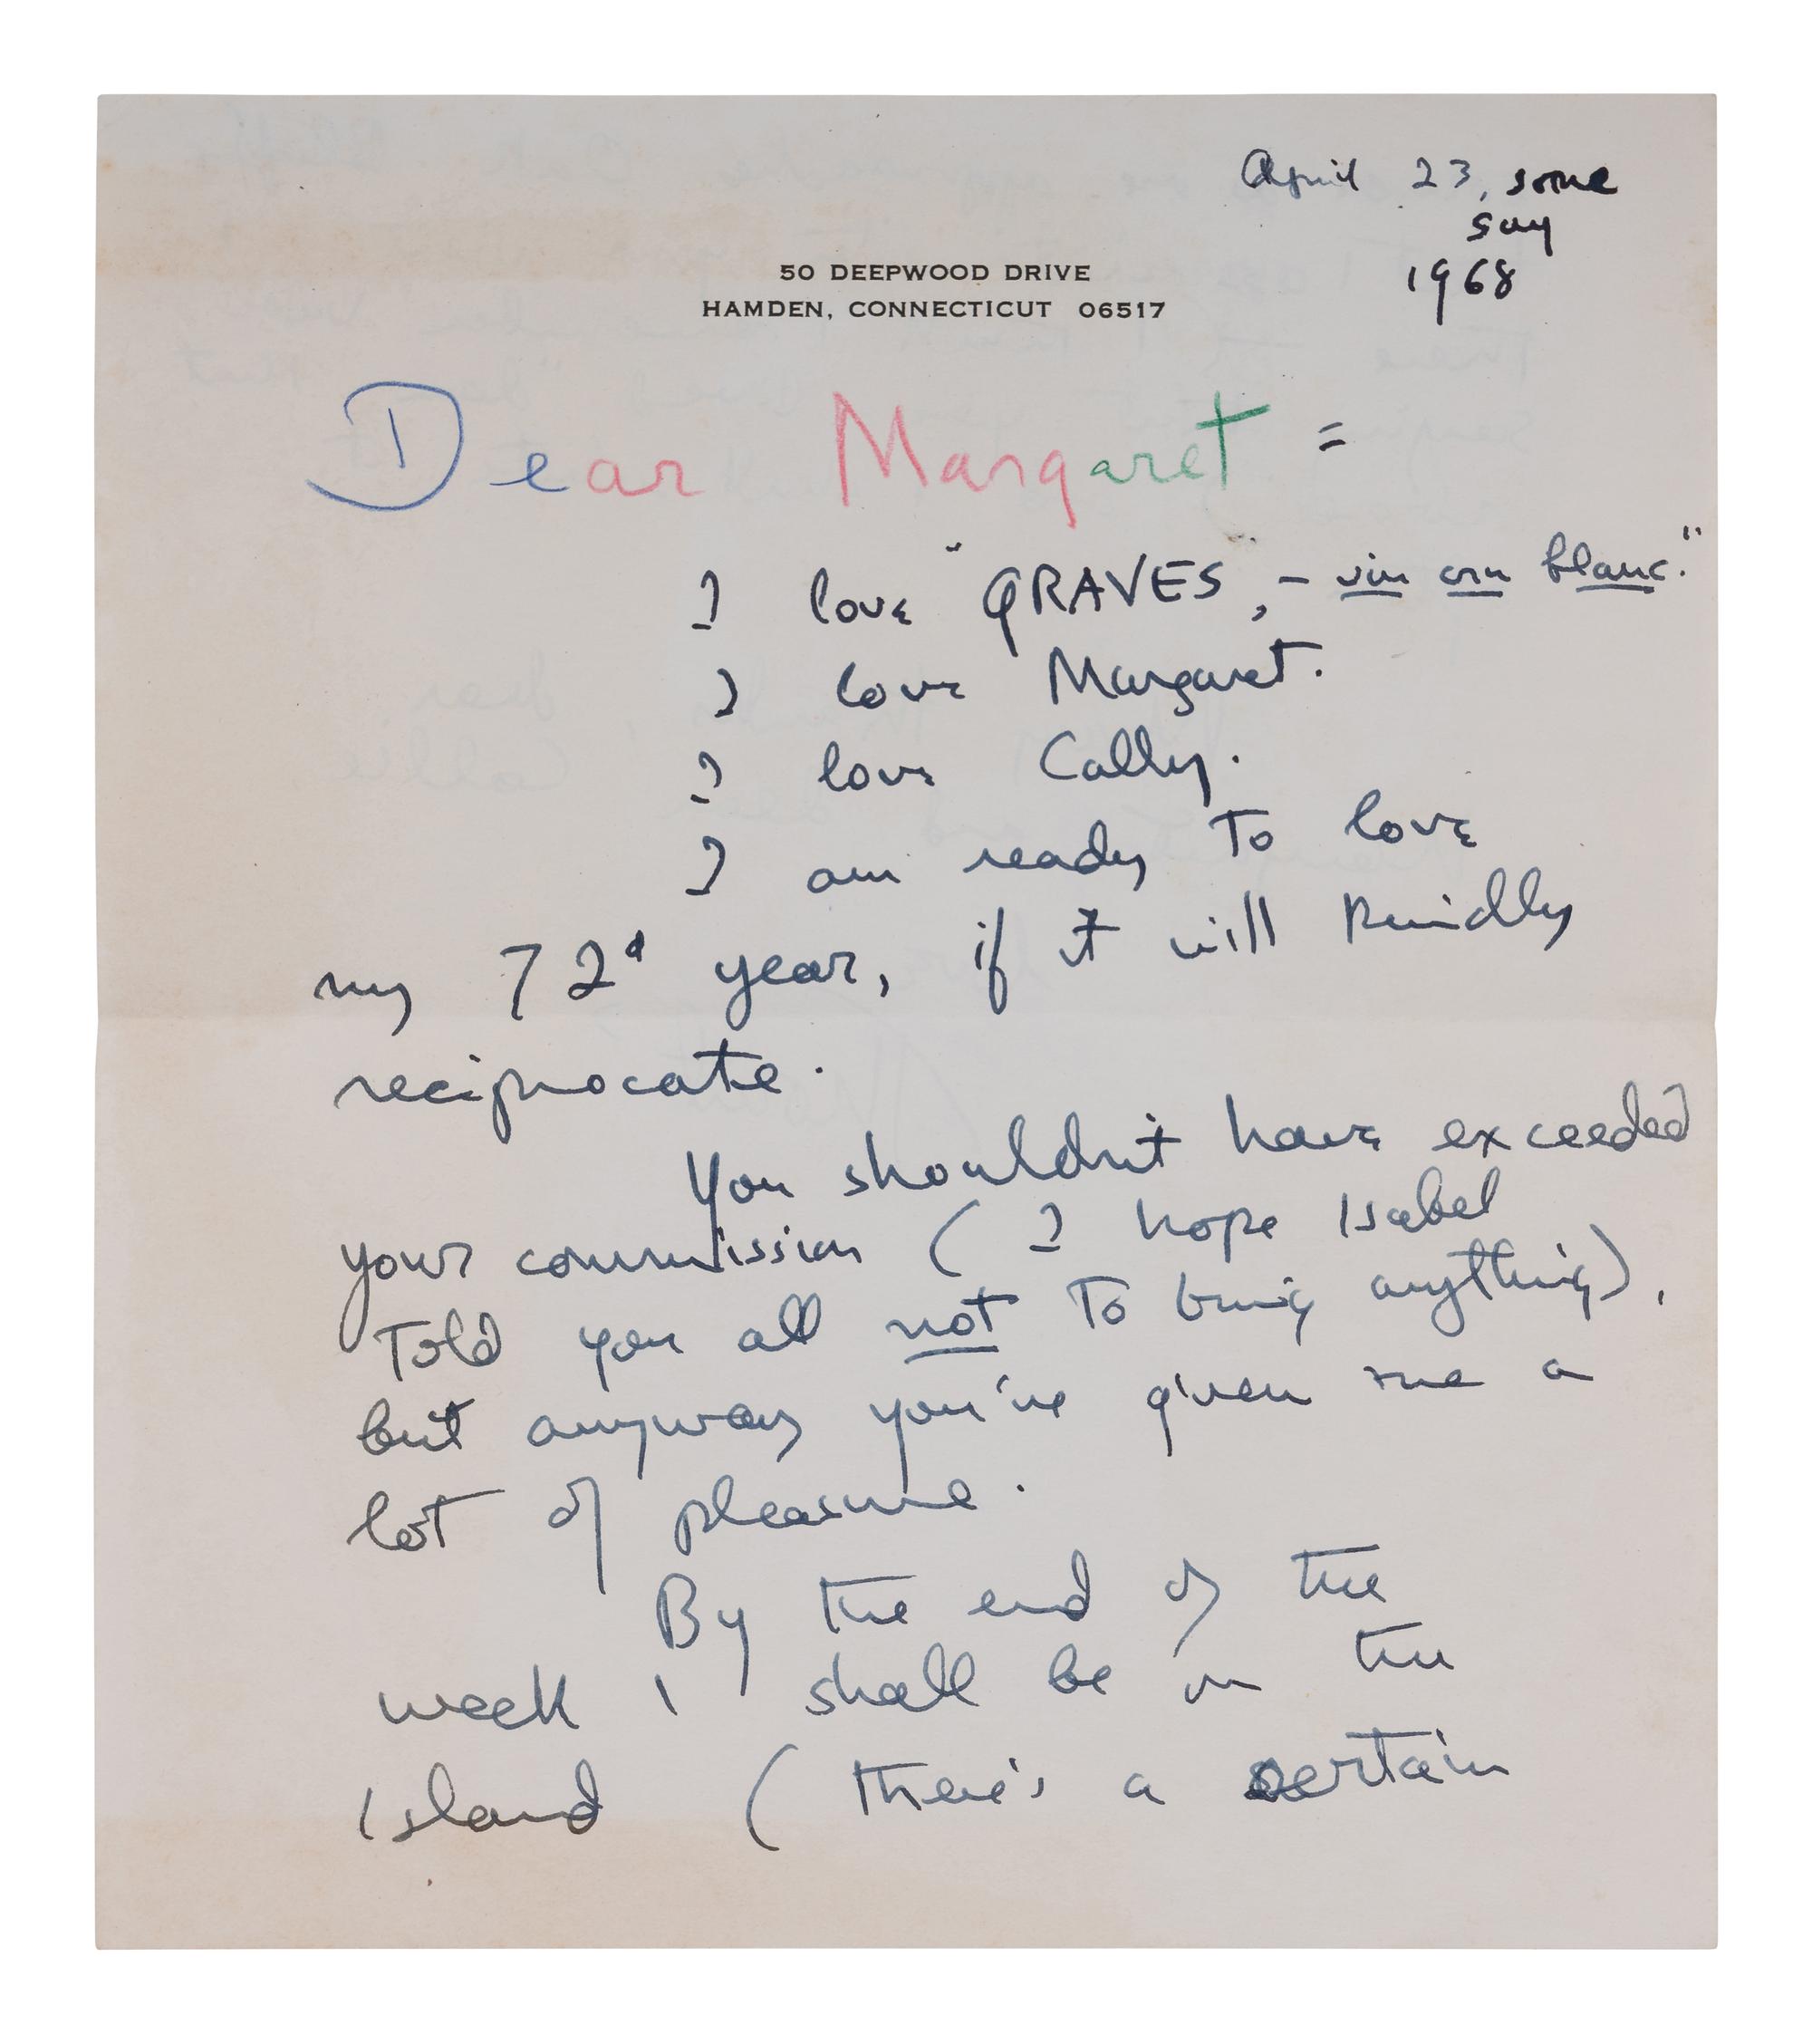 April 23, some
say
1968
50 DEEPWOOD DRIVE
HAMDEN, CONNECTICUT 06517
Dear Margaret =
I love "GRAVES", – vin cru blanc."
I love Margaret.
I love Cally.
I am ready to love
my 72d year, if it will kindly
reciprocate.
You shouldn't have exceeded
your commission ( I hope Isabel
told you all not to bring anything),
but anyway you've given me a
lot of pleasure.
By the end of the
week I shall be in the
Island ( there's a certain